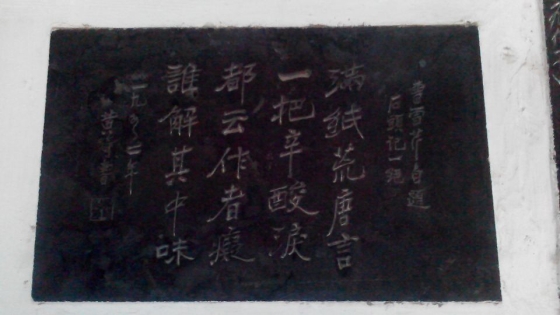 曹雪芹自題
石頭記一絕
滿紙荒唐言
一把辛酸淚
都云作者癡
誰解其中味
一九
書